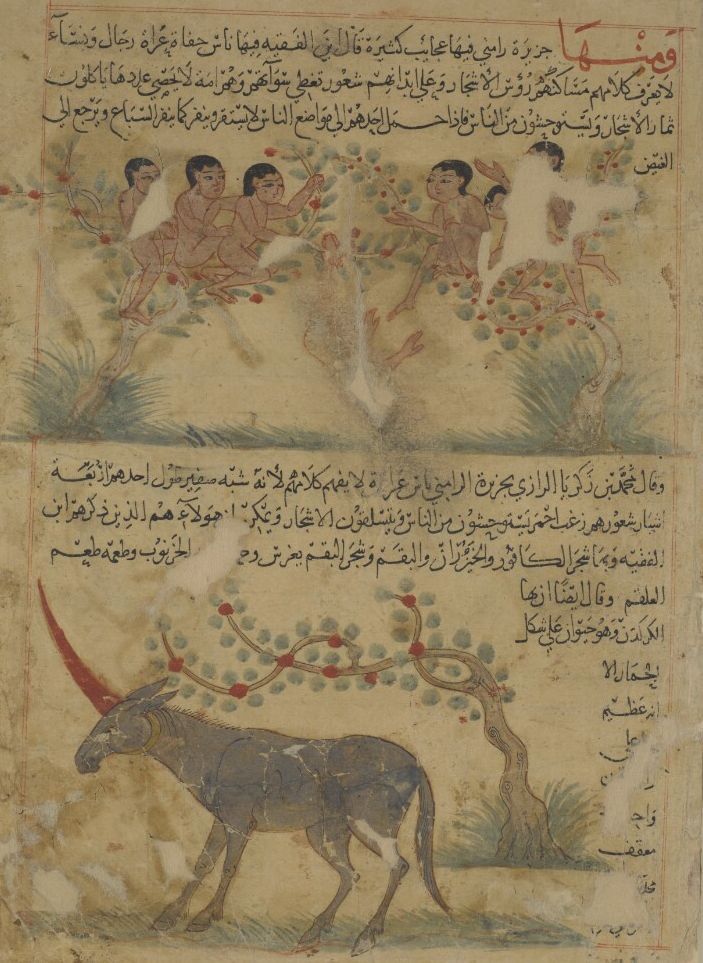 ومنها جزيرة رامني فيها عجايب كثيرة قال ابن الفقيه فيها ناس حفاة عراة رجال ونسآء
لا يعرف كلامهم مساكنهم روس الاشجار وعلى ابدانهم شعور تغطي سوآتهم وهم امة لا يحصى عددها ياكلون
ثمار الاشجار ويستوحشون من الناس فاذا حمل احدهم الى مواضع الناس لا يستقر وينفر كما ينفر السباع ويرجع الى
الغيض
وقال محمد بن زكريا الرازي بجزيرة الرامني ناس عراة لا يفهم كلامهم لانه شبه صفير طول احدهم اربعة
اشبار شعورهم زغب احمر يستوحشون من الناس ويتسلقون الاشجار هولاء هم الذين ذكرهم ابن
الفقيه وبها شجر الكافور والخيزران والبقم وشجر البقم يغرس الخرنوب وطعمه طعم
العلقم وقال ايضا ان بها
الكركدن وهو حيوان على شكل
الحمار الا
انه عظيم
على
معقف